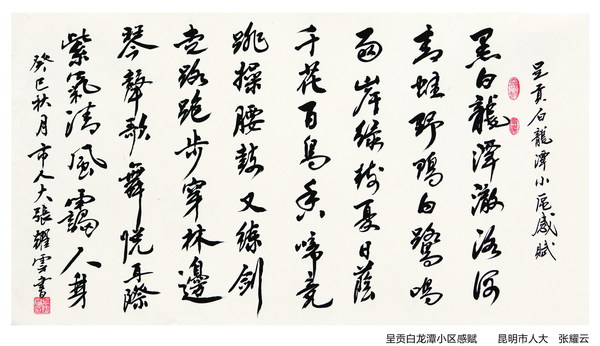 呈貢白龍潭小區感賦
黑白龍潭激洛河
青蛙野鴨白鷺鳴
兩岸綠樹夏日蔭
千花百鳥香啼竞
跳操腰鼓又練劍
走路跑步穿林邊
琴聲歌舞悦耳際
紫氣清風靄人身
癸巳秋月市人大張耀雲書
呈贡白龙潭小区感赋 昆明市人大 张耀云